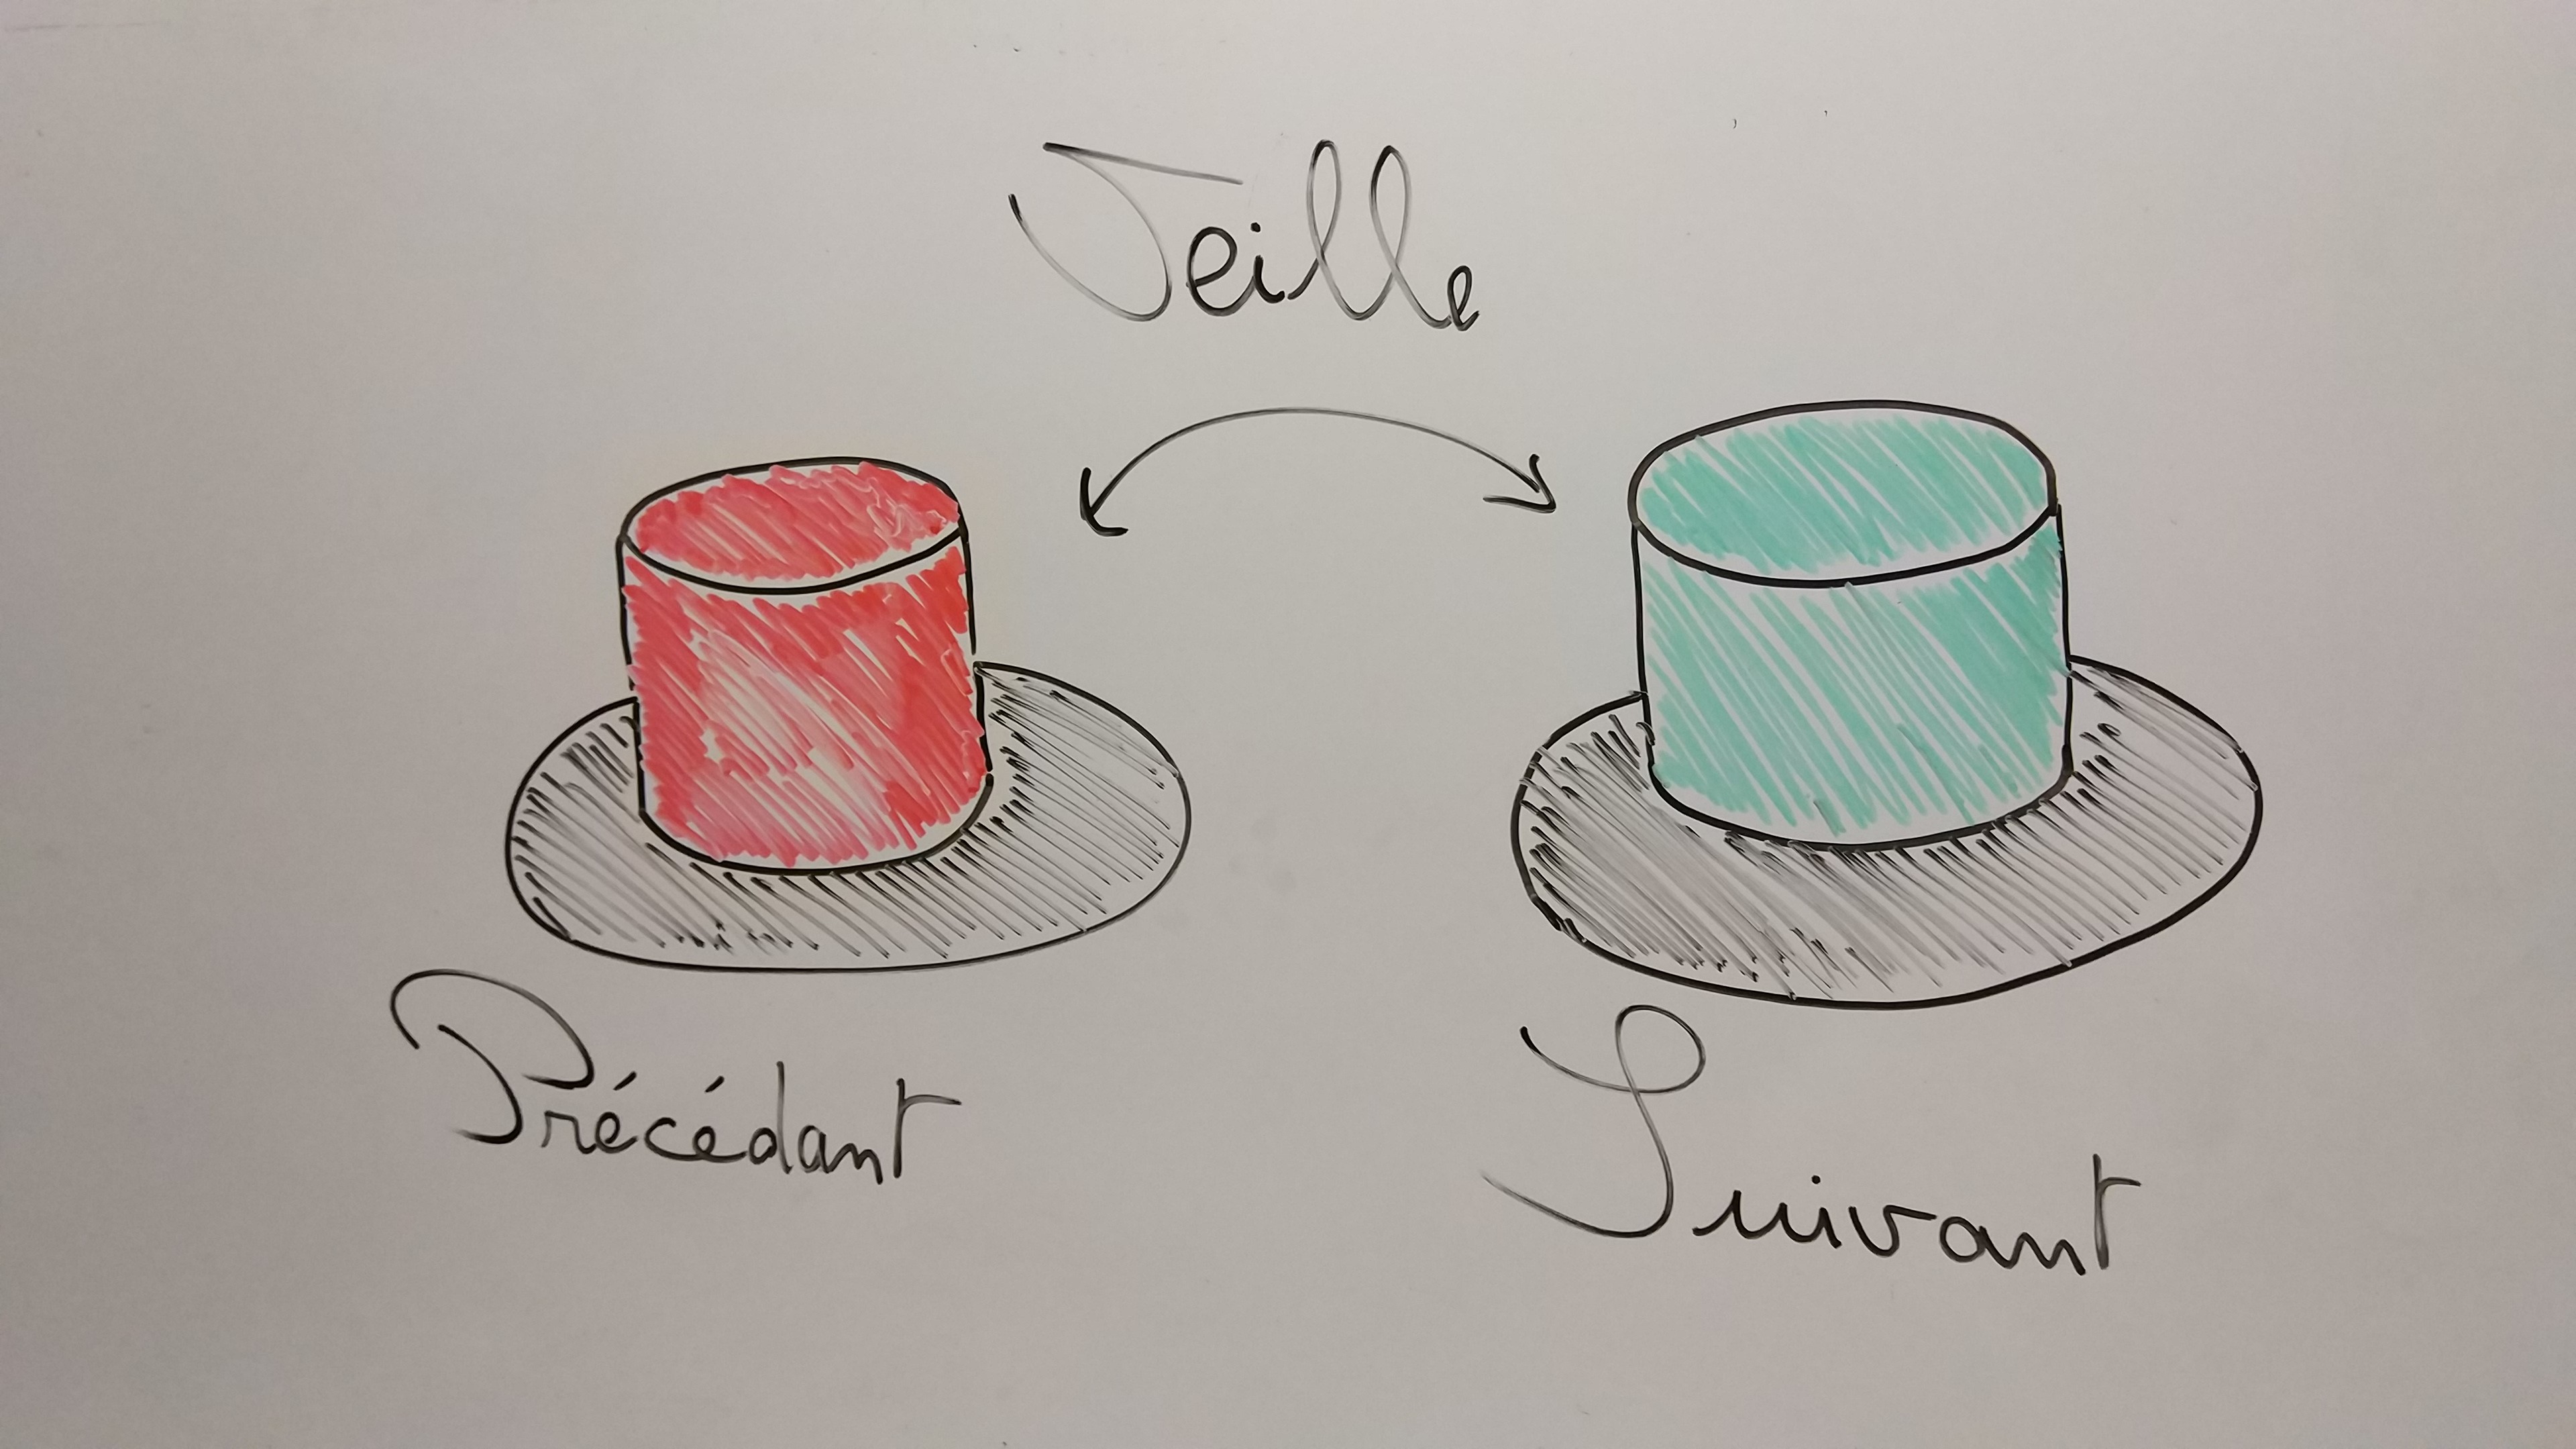 Veille
Précédant
Suivant